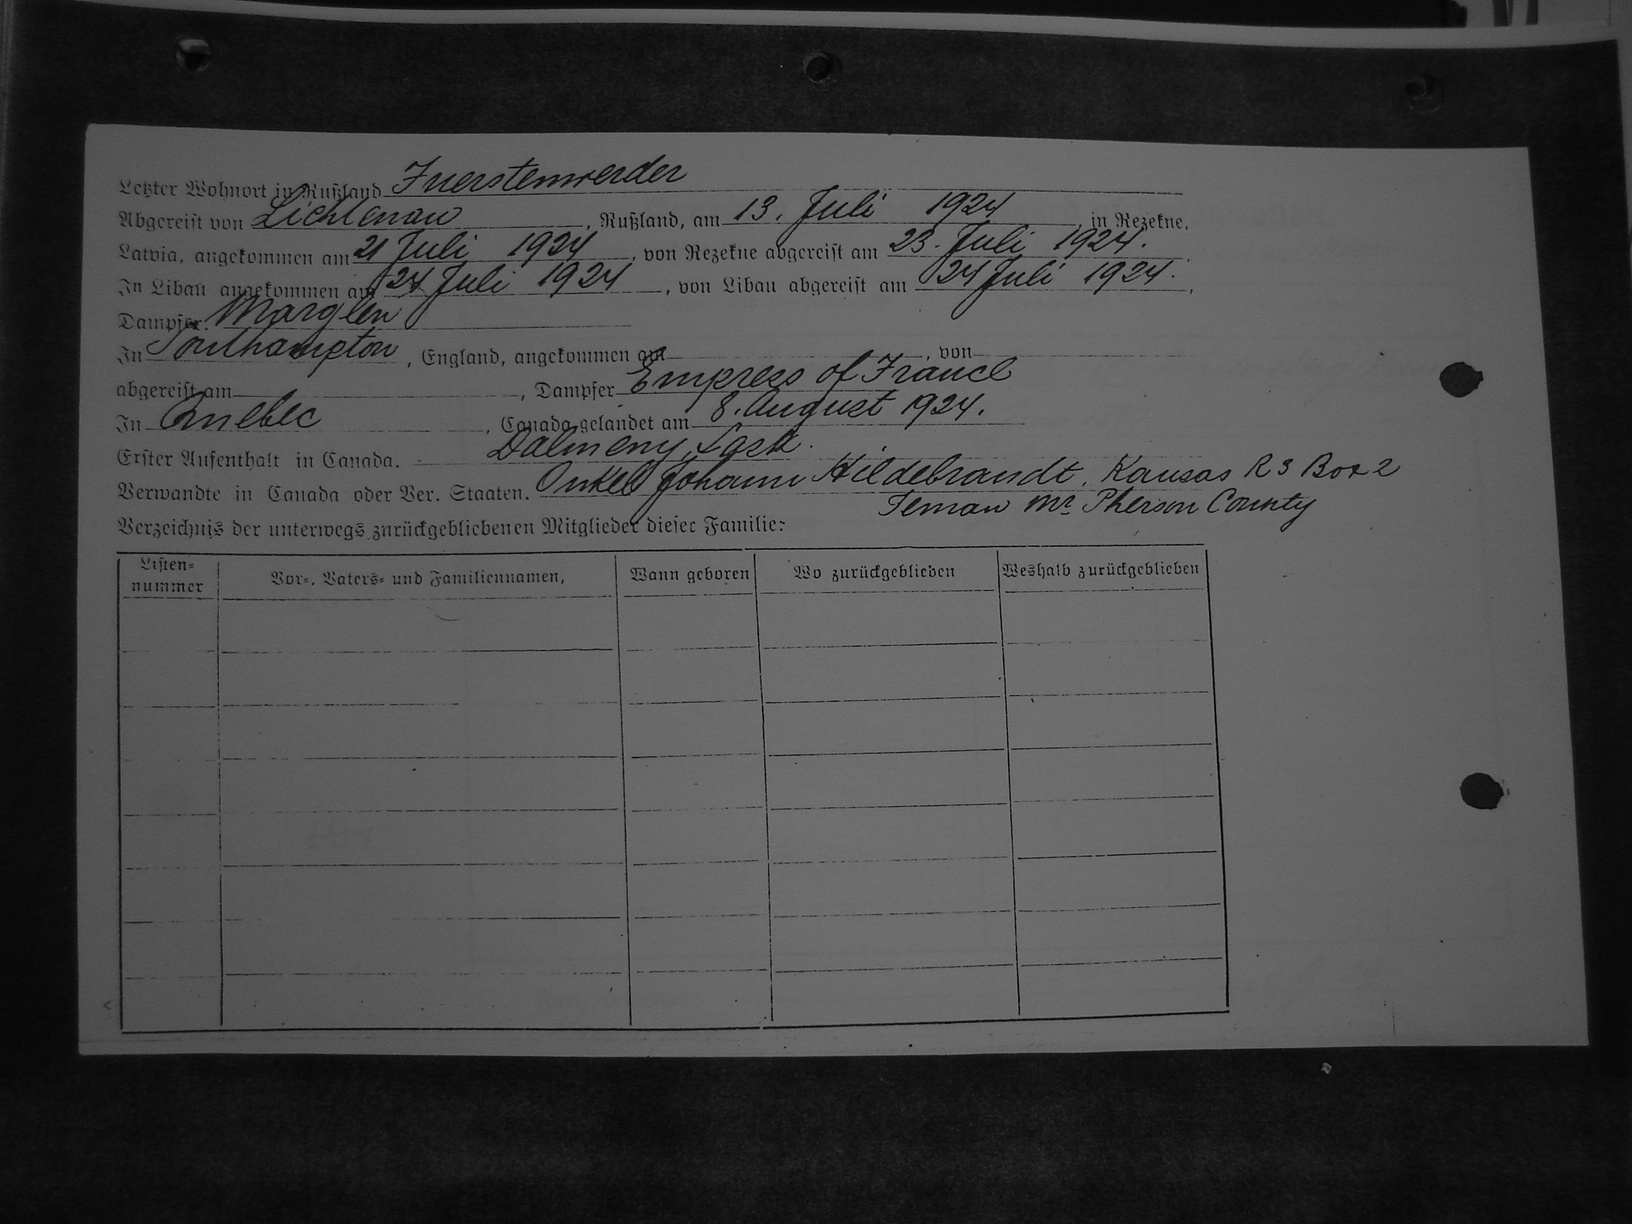 Letzter Wohnort in Rußland Fuerstenwerder
Abgereist von Lichtenau, Rußland, am 13. Juli 1924 in Rezekne,
Latvia, angekommen am 21 Juli 1924, von Rezekne abgereist am 23. Juli 1924.
In Libau angekommen am 24 Juli 1924, von Libau abgereist am 24 Juli 1924.,
Dampfer: Marglen
In Southampton, England, angekommen am , von
abgereist am , Dampfer Empress of France
In Quebec, Canada gelandet am 8. August 1924.
Erster Aufenthalt in Canada. Dalmeny, Sask.
Verwandte in Canada oder Ver. Staaten. Onkel Johann Hildebrandt, Kansas R 3 Box 2
Mc Pherson County
Verzeichnis der unterwegs zurückgebliebenen Mitglieder dieser Familie:
Listen-
nummer
Vor-, Vaters- und Familiennamen,
Wann geboren
Wo zurückgeblieben
Weshalb zurückgeblieben